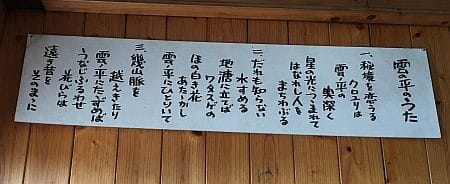 雲の平のうた
一、秘境を恋うる
クロユリは
雲の平の奥深く
星の光につつまれて
はなれし人を
まちわぶる
二、だれも知らない
水すめる
池溏に立てば
ワタスゲの
ほの白き花
あたゝかし
雲ノ平にひらりいて
三、幾山脈を
越えきたり
雲ノ平にたゝずめば
うなじふるわせ
花びらは
遠き昔を
そのまゝに